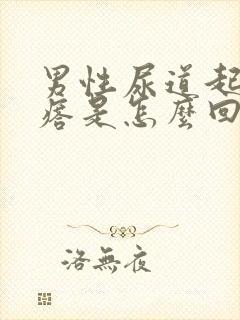 男性尿道起
痞是怎麼回
洛無夜